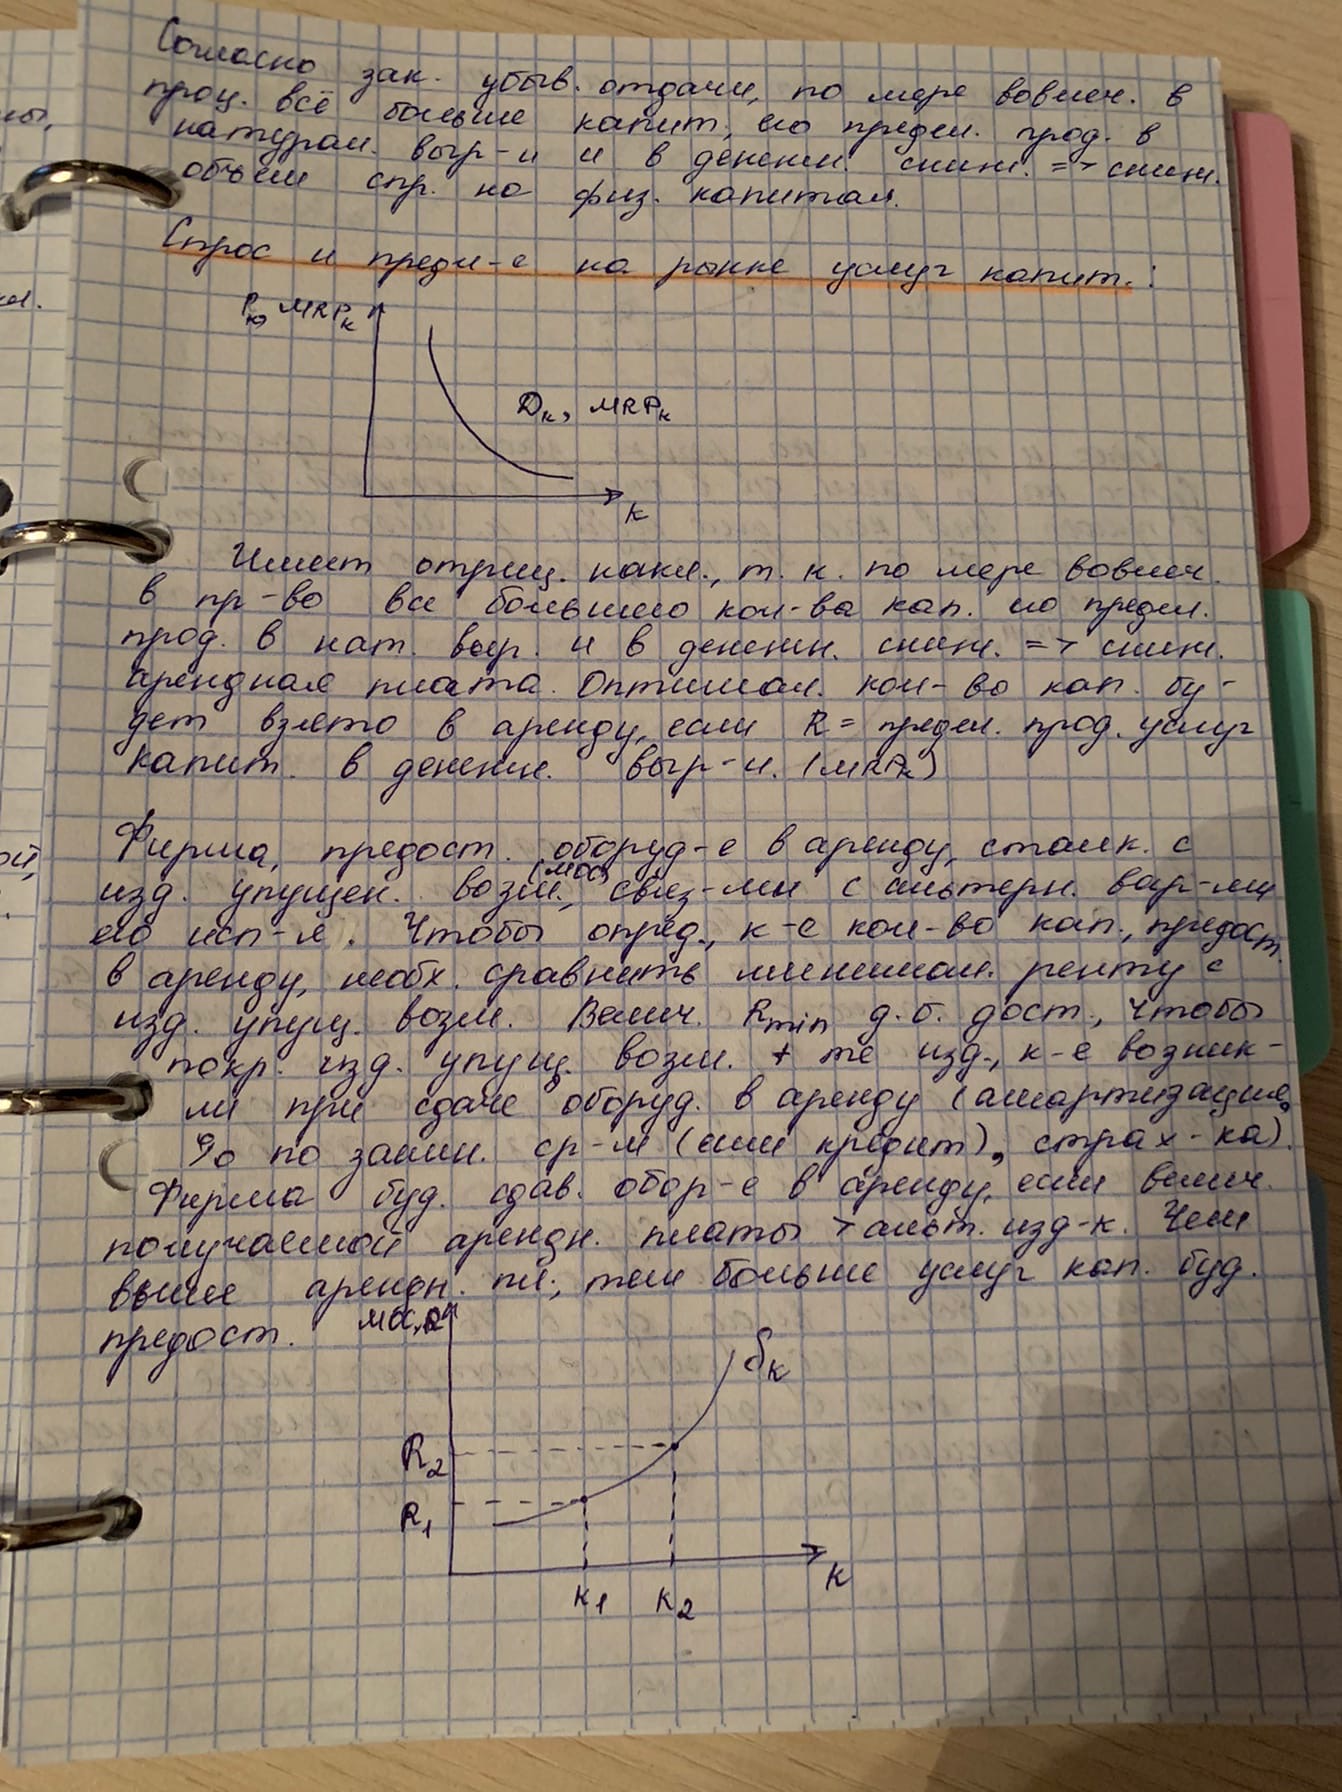 Согласно зак. убыв. отдачи, по мере вовлеч. в
проц. всё больше капит, его предел. прод. в
натурал. выр-и и в денежн. сниж. => сниж.
объем спр. на физ. капитал.
Спрос и предл-е на рынке услуг капит.:
Pк, MRPк
Dк, MRPк
K
Имеет отриц. накл., т. к. по мере вовлеч.
в пр-во все большего кол-ва кап. его предел.
прод. в нат. выр. и в денежн. сниж. => сниж.
арендная плата. Оптимал. кол-во кап. бу-
дет взято в аренду, если R = предел. прод. услуг
капит. в денежн. выр-и. (MRPк)
Фирма, предост. оборуд-е в аренду, сталк. с
изд. упущен. возм. (MOC), связ-ми с альтерн. вар-ми
его исп-я. Чтобы опред., к-е кол-во кап., предост.
в аренду, необх. сравнить минимал. ренту с
изд. упущ. возм. Велич. Rmin д.б. дост., чтобы
покр. изд. упущ. возм. + те изд., к-е возник-
ли при сдаче оборуд. в аренду (амортизация,
% по заимн. ср-м (если кредит), страх-ка).
Фирма буд. сдав. обор-е в аренду, если велич.
получаемой арендн. платы > альт. изд-к. Чем
выше арендн. пл., тем больше услуг кап. буд.
предост.
MOC, R
Sк
R2
R1
K
K1 K2